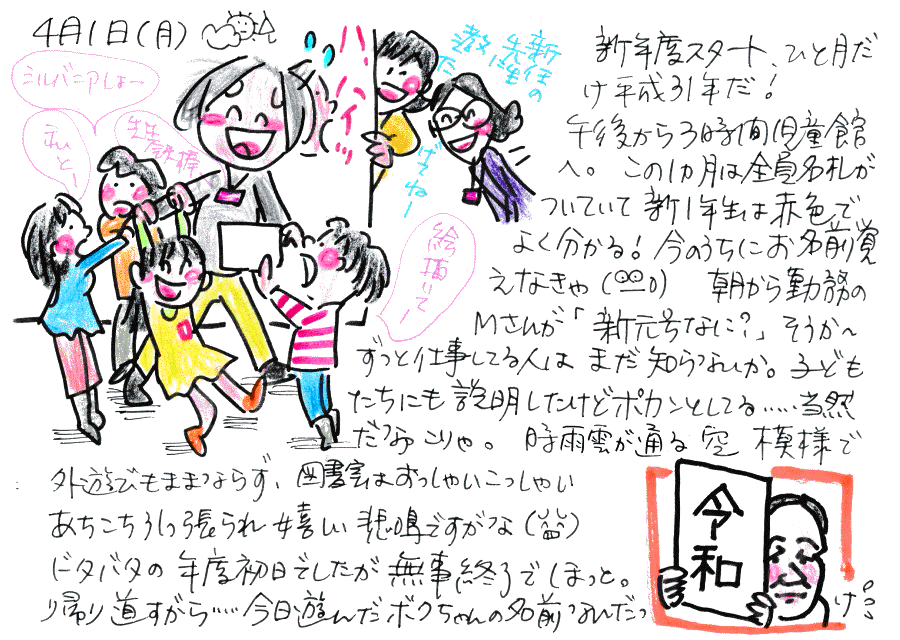 4月1日(月)
新年度スタート、ひと月だ
け平成31年だ!
午後から3時間児童館
へ。この1カ月は全員名札が
ついていて新1年生は赤色で
よく分かる!今のうちにお名前覚
えなきゃ 朝から勤務の
Mさんが「新元号なに?」そうか~
ずっと仕事してる人はまだ知らないか。子ども
たちにも説明したけどポカンとしてる……当然
だなこりゃ。時雨雲が通る空模様で
外遊びもままならず、図書室はおっしゃいこっしゃい
あちこち引っ張られ嬉しい悲鳴ですがな
ドタバタの年度初日でしたが無事終了でほっと。
帰り道すがら……今日遊んだボクちゃんの名前なんだっ
け?
シルバニアしよー
ねぇと!
先生鉄棒
ハイハイッ
新任の
先生
教
げてねー
絵描いて!
令和